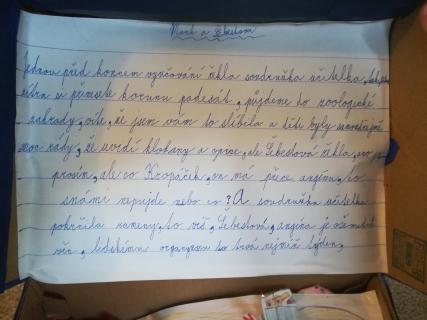 Mach a Šebestová
Jednou před koncem vyučování řekla soudružka učitelka, tak,
zítra si přineste korunu padesát, půjdeme do zoologické
zahrady, víte, že jsem vám to slíbila a děti byly
moc rády, že uvidí klokany a opice, ale Šebestová řekla,
prosím, ale co Kropáček, on má přece angínu, to
s námi nepujde nebo co? A soudružka učitelka
pokrčila rameny, to víš, Šebestová, angína je
věc, lidskému organysmu to trvá nejmíň týden,